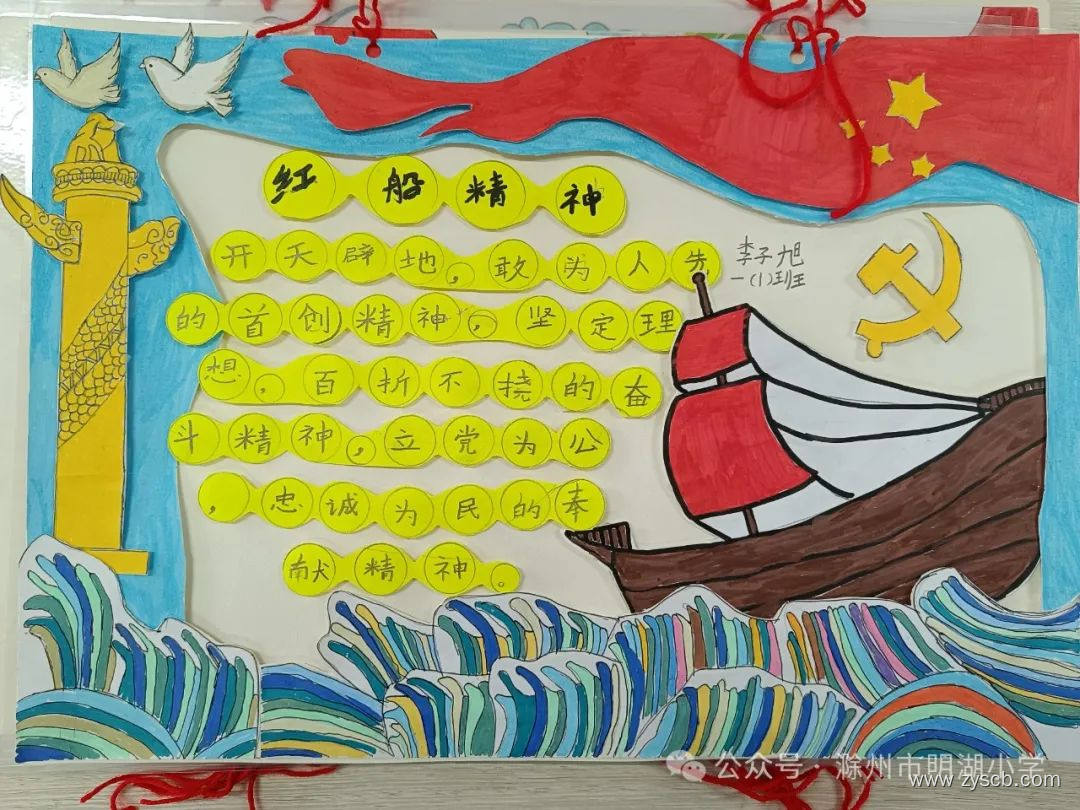 红船精神
开天辟地,敢为人先
李子旭
一(1)班
的首创精神,坚定理
想,百折不挠的奋
斗精神,立党为公
,忠诚为民的奉
献精神。
公众号·滁州市明湖小学
www.zyscb.com